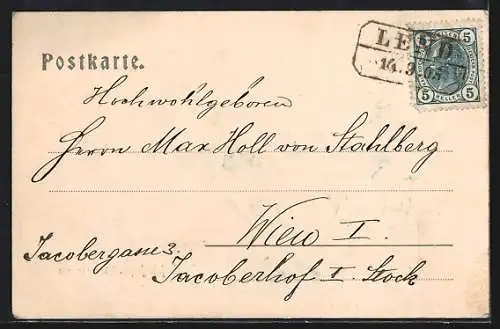 Postkarte.
5 5
5 5
14.3.05
Hochwohlgeboren
Herrn Max Holl von Stahlberg
Wien I.
Jacobergasse 3.
Jacoberhof I. Stock